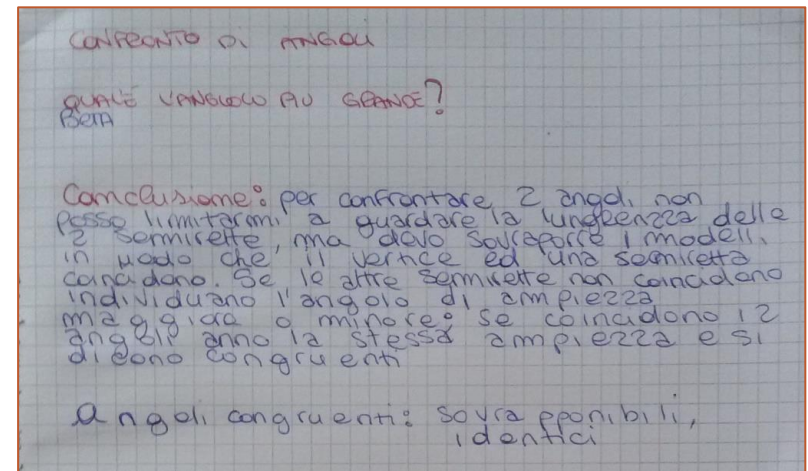 CONFRONTO DI ANGOLI
QUALE L'ANGLOLO PIU GRANDE?
BETA
Conclusione: per confrontare 2 angoli non
posso limitarmi a guardare la lungheenzza delle
2 sermirette, ma devo sovraporre i modelli
in modo che il vertice ed una semiretta
coincidono. Se le altre semirette non coincidono
individuano l'angolo di ampiezza
maggiore o minore: se coincidono i 2
angoli anno la stessa ampiezza e si
dicono congruenti
Angoli congruenti: sovra pponibili,
identici